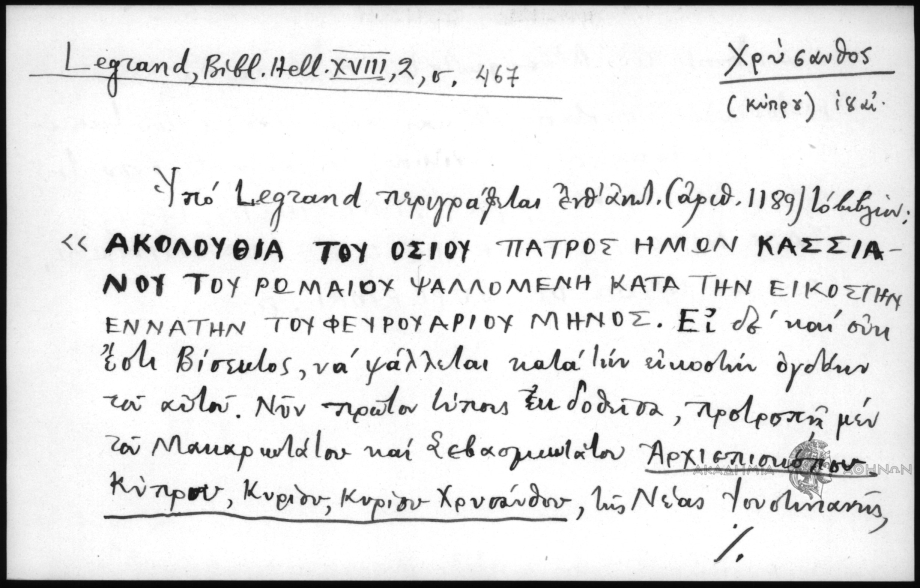 Legrand, Bibl. Hell. XVIII, 2, σ. 467
Χρύσανθος
(Κύπρου) ιη΄ αἰ.
Ὑπό Legrand περιγράφεται ἐνθ' ἀνωτ. (ἀριθ. 1189) τό βιβλίον:
«ΑΚΟΛΟΥΘΙΑ ΤΟΥ ΟΣΙΟΥ ΠΑΤΡΟΣ ΗΜΩΝ ΚΑΣΣΙΑ-
ΝΟΥ ΤΟΥ ΡΩΜΑΙΟΥ ΨΑΛΛΟΜΕΝΗ ΚΑΤΑ ΤΗΝ ΕΙΚΟΣΤΗΝ
ΕΝΝΑΤΗΝ ΤΟΥ ΦΕΥΡΟΥΑΡΙΟΥ ΜΗΝΟΣ. Εἰ δέ καί οὐκ
ἔστι Βίσεκτος, νά ψάλλεται κατά τήν εἰκοστήν ὀγδόην
τοῦ αὐτοῦ. Νῦν πρῶτον τύποις ἐκδοθεῖσα, προτροπῇ μέν
τοῦ Μακαριωτάτου καί Σεβασμιωτάτου Ἀρχιεπισκόπου
Κύπρου, Κυρίου, Κυρίου Χρυσάνθου, τῆς Νέας Ἰουστινιανῆς,
./.
ΑΚΑΔΗΜΙΑ ΑΘΗΝΩΝ